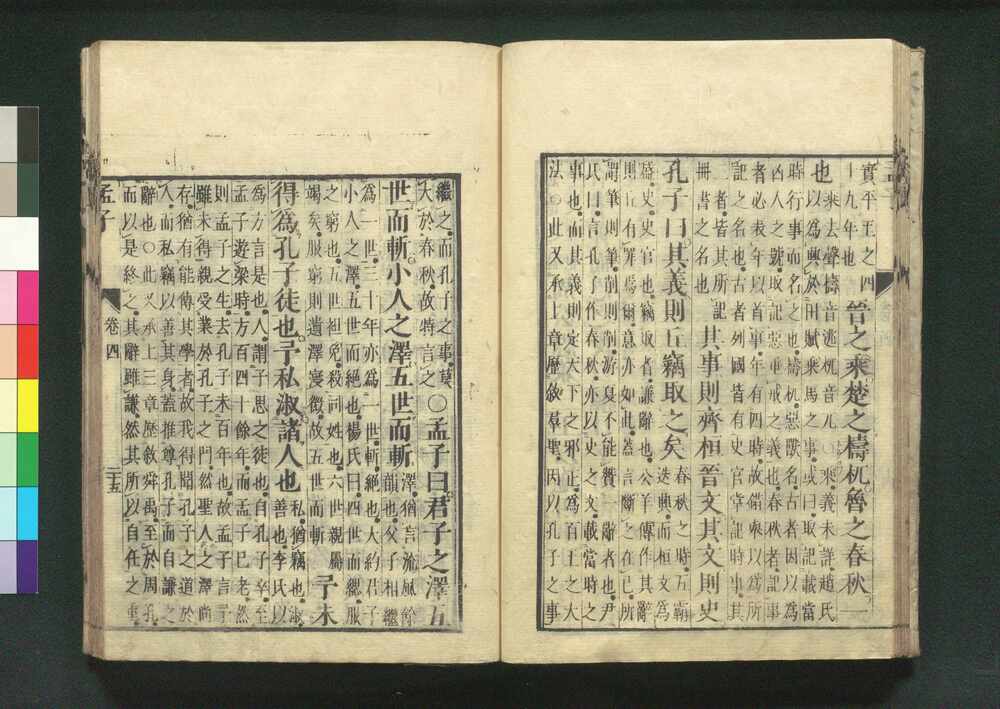 實平王之四
十九年也
晉之乘楚之檮杌魯之春秋一
也
乘去聲檮音逃杌音兀○乘義未詳趙氏
以為興於田賦乘馬之事或曰取記載當
時行事而名之也檮杌惡獸名古者因以為
凶人之號取記惡垂戒之義也春秋者記事
者必表年以首事年有四時故錯舉以為所
記之名也古者列國皆有史官掌記時事此
三者皆其所記
冊書之名也
其事則齊桓晉文其文則史
孔子曰其義則丘竊取之矣
春秋之時五霸
迭興而桓文為
盛史史官也竊取者謙辭也公羊傳作其辭
則丘有罪焉爾意亦如此蓋言斷之在己所
謂筆則筆削則削游夏不能贊一辭者也尹
氏曰言孔子作春秋亦以史之文載當時之
事也而其義則定天下之邪正為百王之大
法○此又承上章歷敘羣聖因以孔子之事
繼之而孔子之事莫
大於春秋故特言之
○孟子曰君子之澤五
世而斬小人之澤五世而斬
澤猶言流風餘
韻也父子相繼
為一世三十年亦為一世斬絶也大約君子
小人之澤五世而絶也楊氏曰四世而緦服
之窮也五世袒免殺同姓也六世親屬
竭矣服窮則遺澤寖微故五世而斬
予未
得為孔子徒也予私淑諸人也
私猶竊也淑
善也李氏以
為方言是也人謂子思之徒也自孔子卒至
孟子遊梁時方百四十餘年而孟子已老然
則孟子之生去孔子未百年也故孟子言予
雖未得親受業於孔子之門然聖人之澤尚
存猶有能傳其學者故我得聞孔子之道於
人而私竊以善其身蓋推尊孔子而自謙之
辭也○此又承上三章歷敘舜禹至於周孔
而以是終之其辭雖謙然其所以自任之重
孟子 卷四 二十五